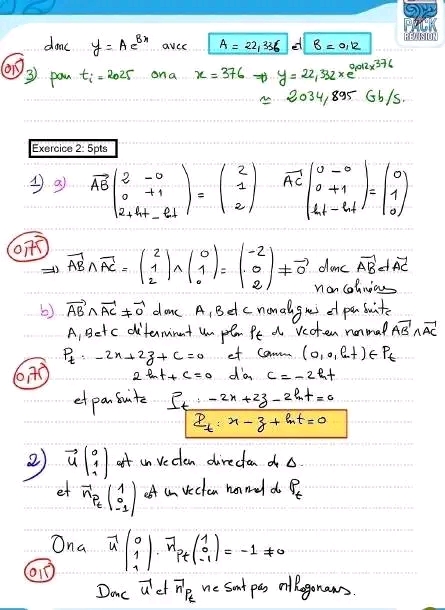 PACK
REVISION
donc y = A e^{Bx} avec A = 22,336 et B = 0,12
0,5 3) pour t_i = 2025 on a x = 376 ⇒ y = 22,332 × e^{0,012×376}
≃ 2034,895 Gb/s.
Exercice 2: 5pts
1) a) AB→ (2 -0 / 0 +1 / 2+ln t - ln t) = (2 / 1 / 2) AC→ (0 - 0 / 0 +1 / ln t - ln t) = (0 / 1 / 0)
0,75
⇒ AB→ ∧ AC→ = (2 / 1 / 2) ∧ (0 / 1 / 0) = (-2 / 0 / 2) ≠ 0→ donc AB→ et AC→
non colinéaires
b) AB→ ∧ AC→ ≠ 0→ donc A, B et C non alignés et par suite
A, B et C déterminent un plan P_t de vecteur normal AB→ ∧ AC→
P_t : -2x + 2z + c = 0 et comme (0, 0, ln t) ∈ P_t
0,75 2 ln t + c = 0 d'où c = -2 ln t
et par suite P_t : -2x + 2z - 2 ln t = 0
P_t : x - z + ln t = 0
2) u→ (0 / 1 / 1) est un vecteur directeur de Δ.
et n→_{P_t} (1 / 0 / -1) est un vecteur normal de P_t
On a u→ (0 / 1 / 1) . n→_{P_t} (1 / 0 / -1) = -1 ≠ 0
0,5
Donc u→ et n→_{P_t} ne sont pas orthogonaux.